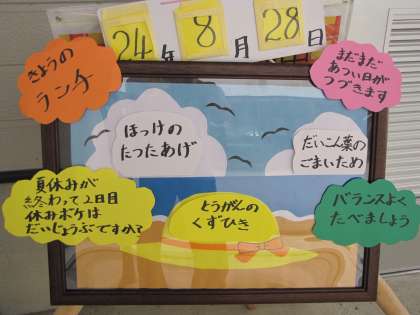 24年8月28日
きょうの
ランチ
まだまだ
あつい日が
つづきます
ほっけの
たったあげ
だいこん葉の
ごまいため
夏休みが
終わって2日目
休みボケは
だいじょうぶですか?
とうがんの
くずひき
バランスよく
たべましょう